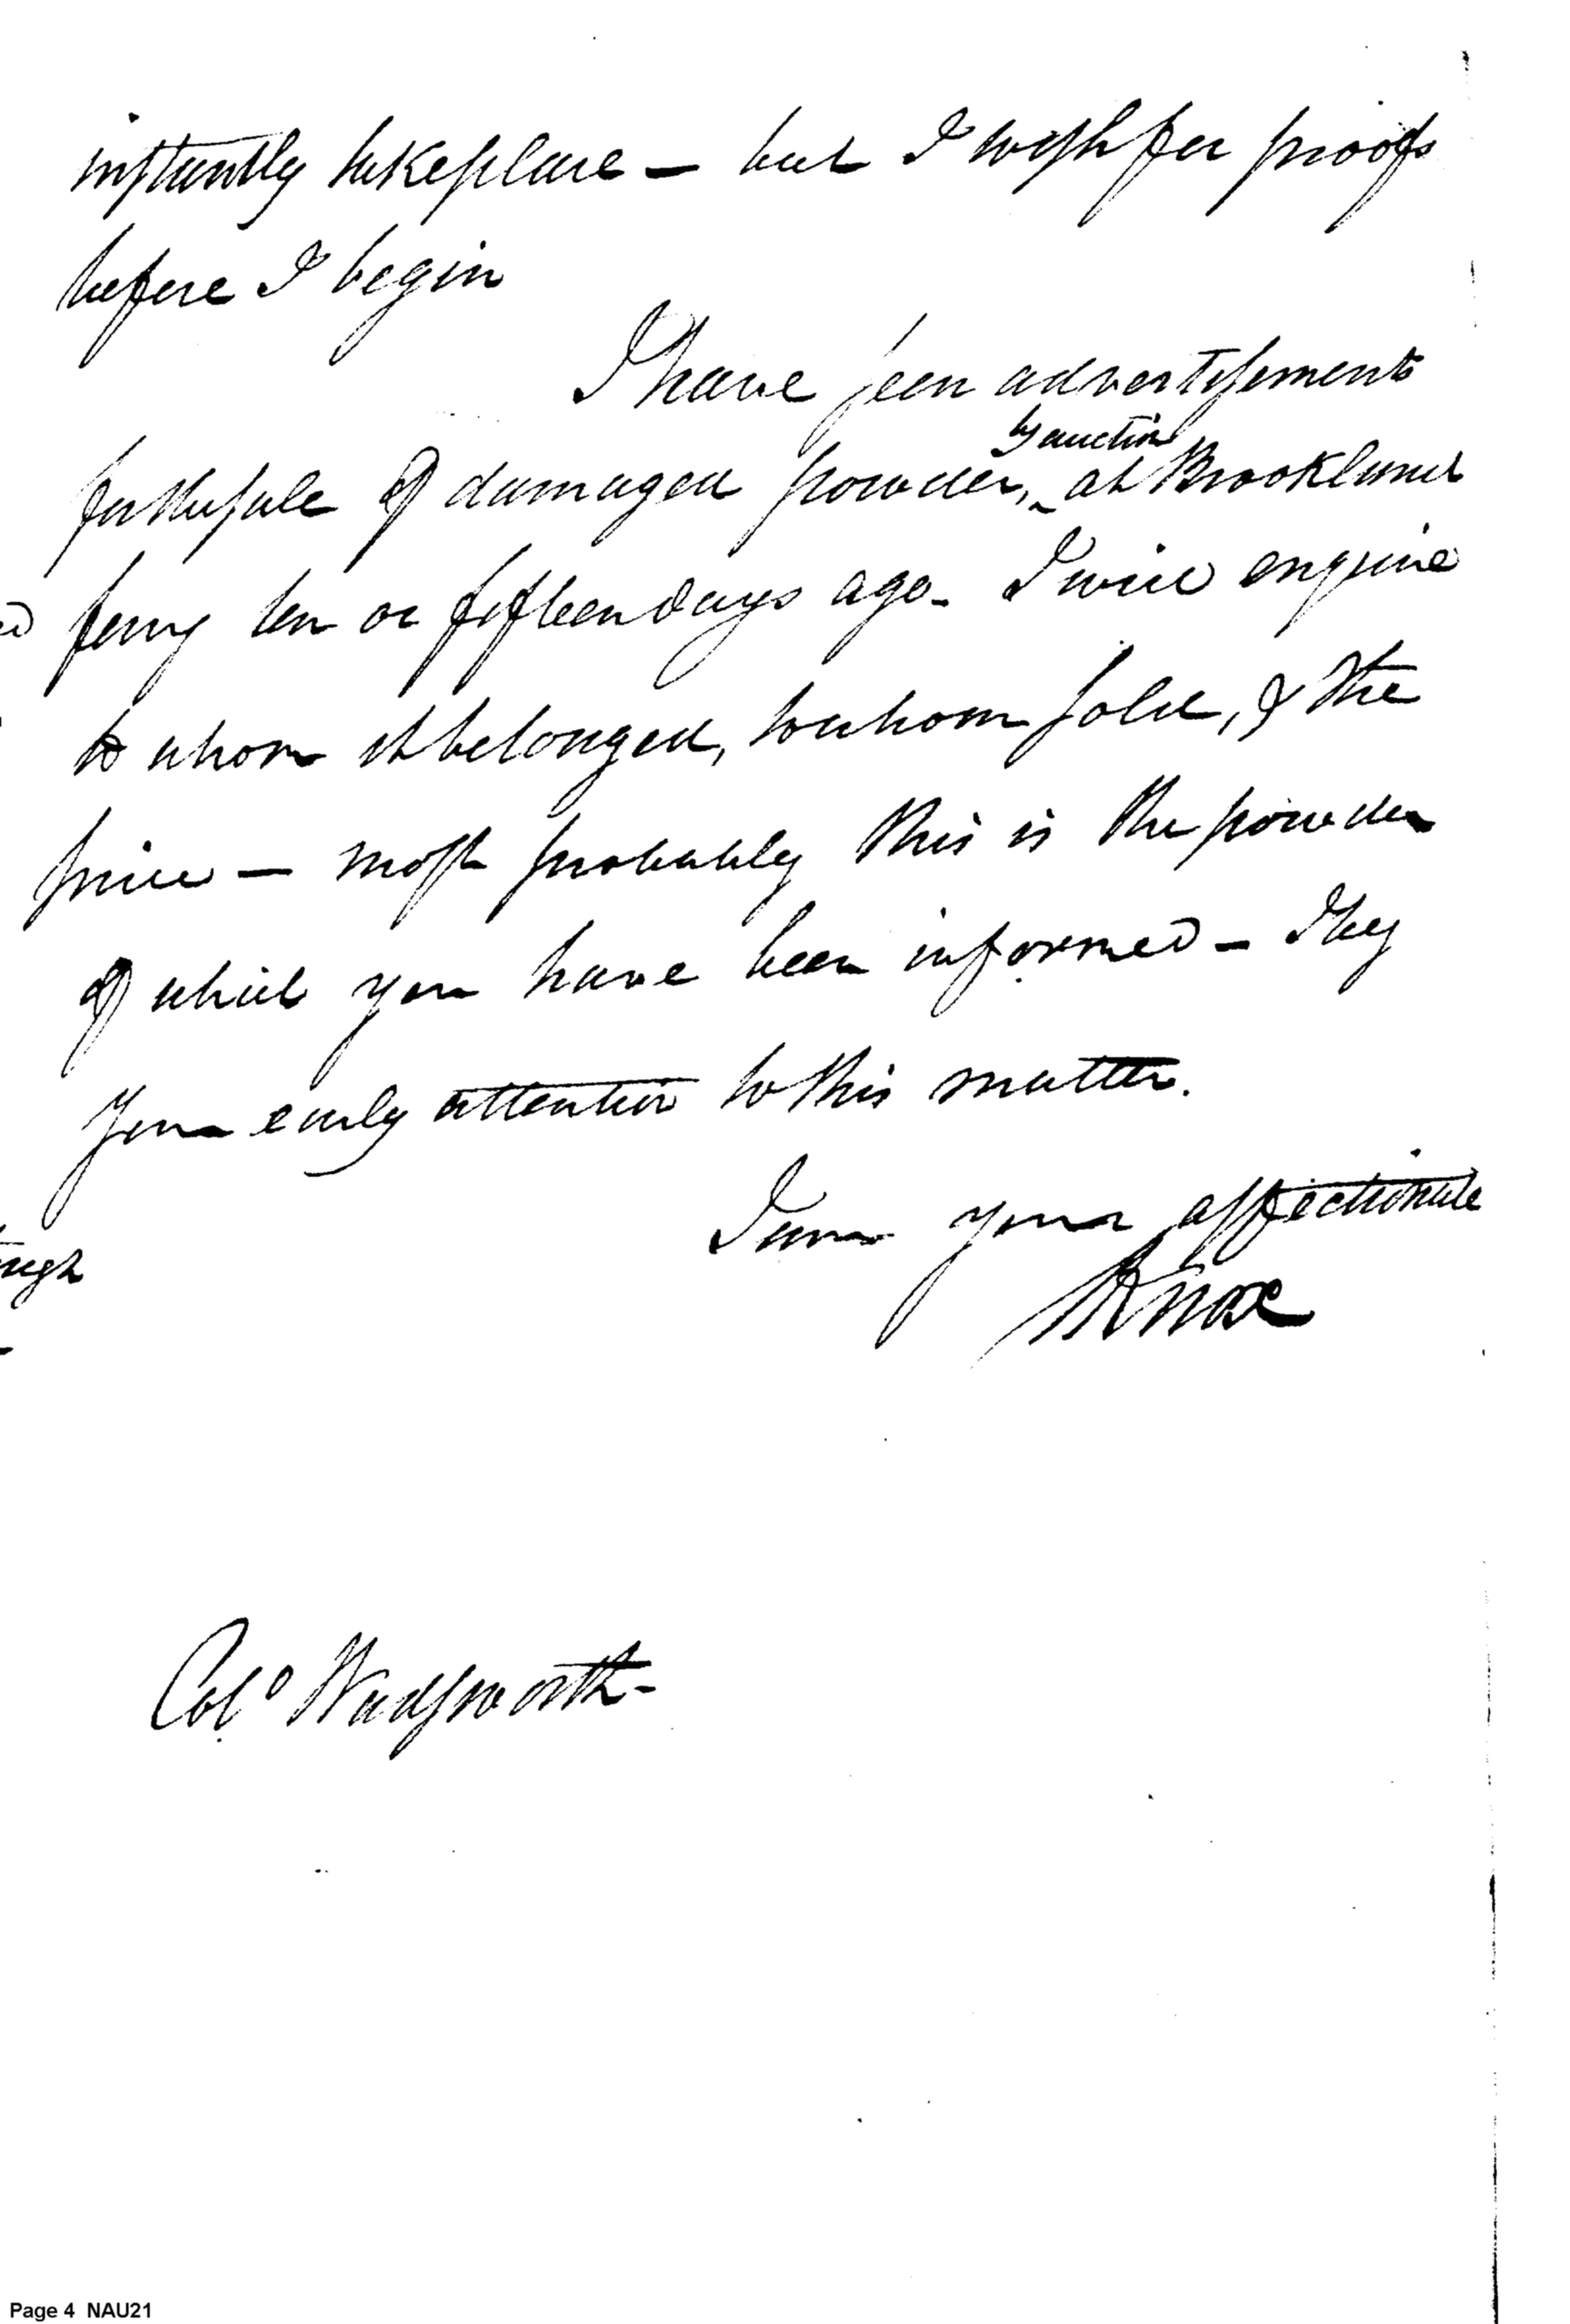 instantly take place — but I wish for proofs
before I begin
I have seen advertisements
for the sale of damaged powder, by auction at Brookland
ferry ten or fifteen days ago - I will enquire
to whom it belonged, to whom sold, & the
price — most probably this is the powder
of which you have been informed - I beg
your early attention to this matter.
I am your affectionate
HKnox
Colo Wadsworth -
Page 4 NAU21